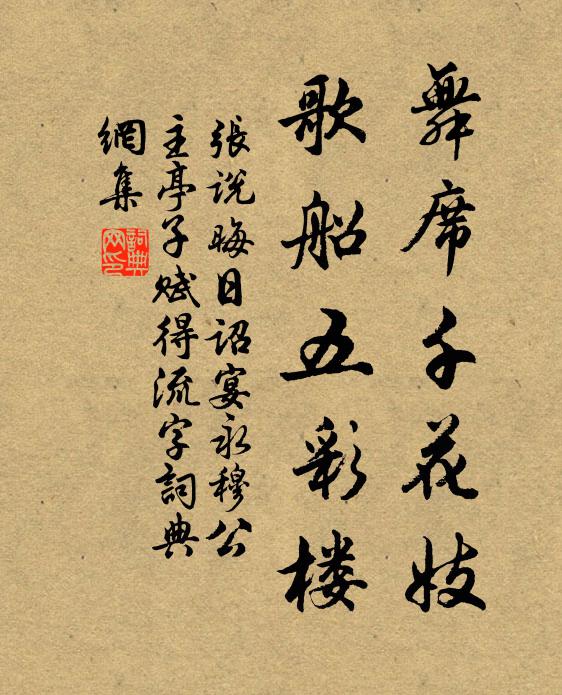 舞席千花妓
歌船五彩楼
張說晦日詔宴永穆公
主亭子賦得流字詞典
網集
詞典網印